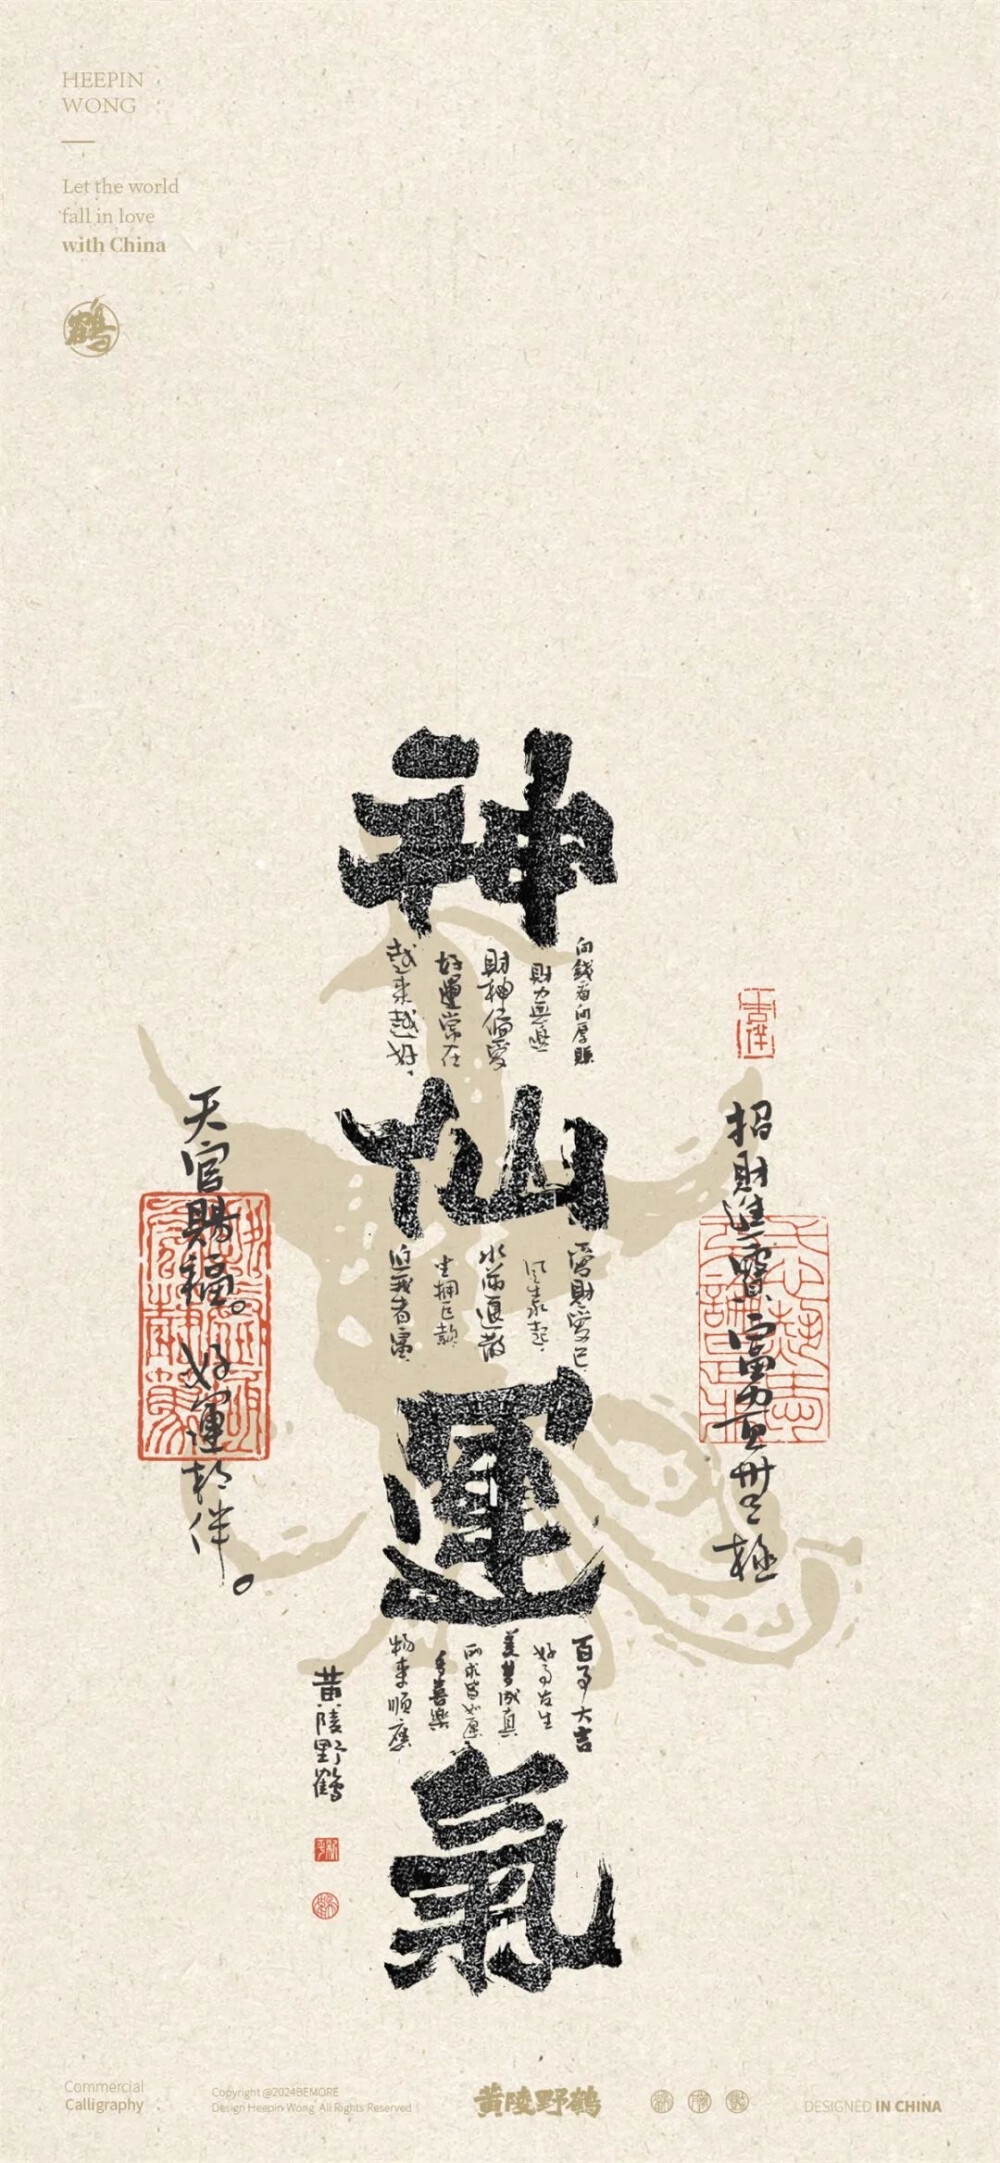 HEEPIN
WONG
Let the world
fall in love
with China
鶴
神仙運氣
向錢看向厚賺
財力無邊
財神偏愛
好運常在
越来越好
愛財愛己
風生水起
水滿退散
坐擁巨款
近我者富
百事大吉
好事发生
美梦成真
所求皆如愿
多喜樂
物事順應
招財進寶富力正無極
天官賜福。好運相伴。
黄陵野鶴
Commercial
Calligraphy
Copyright @2024BEMORE
Design Heepin Wong All Rights Reserved
黄陵野鶴
DESIGNED IN CHINA